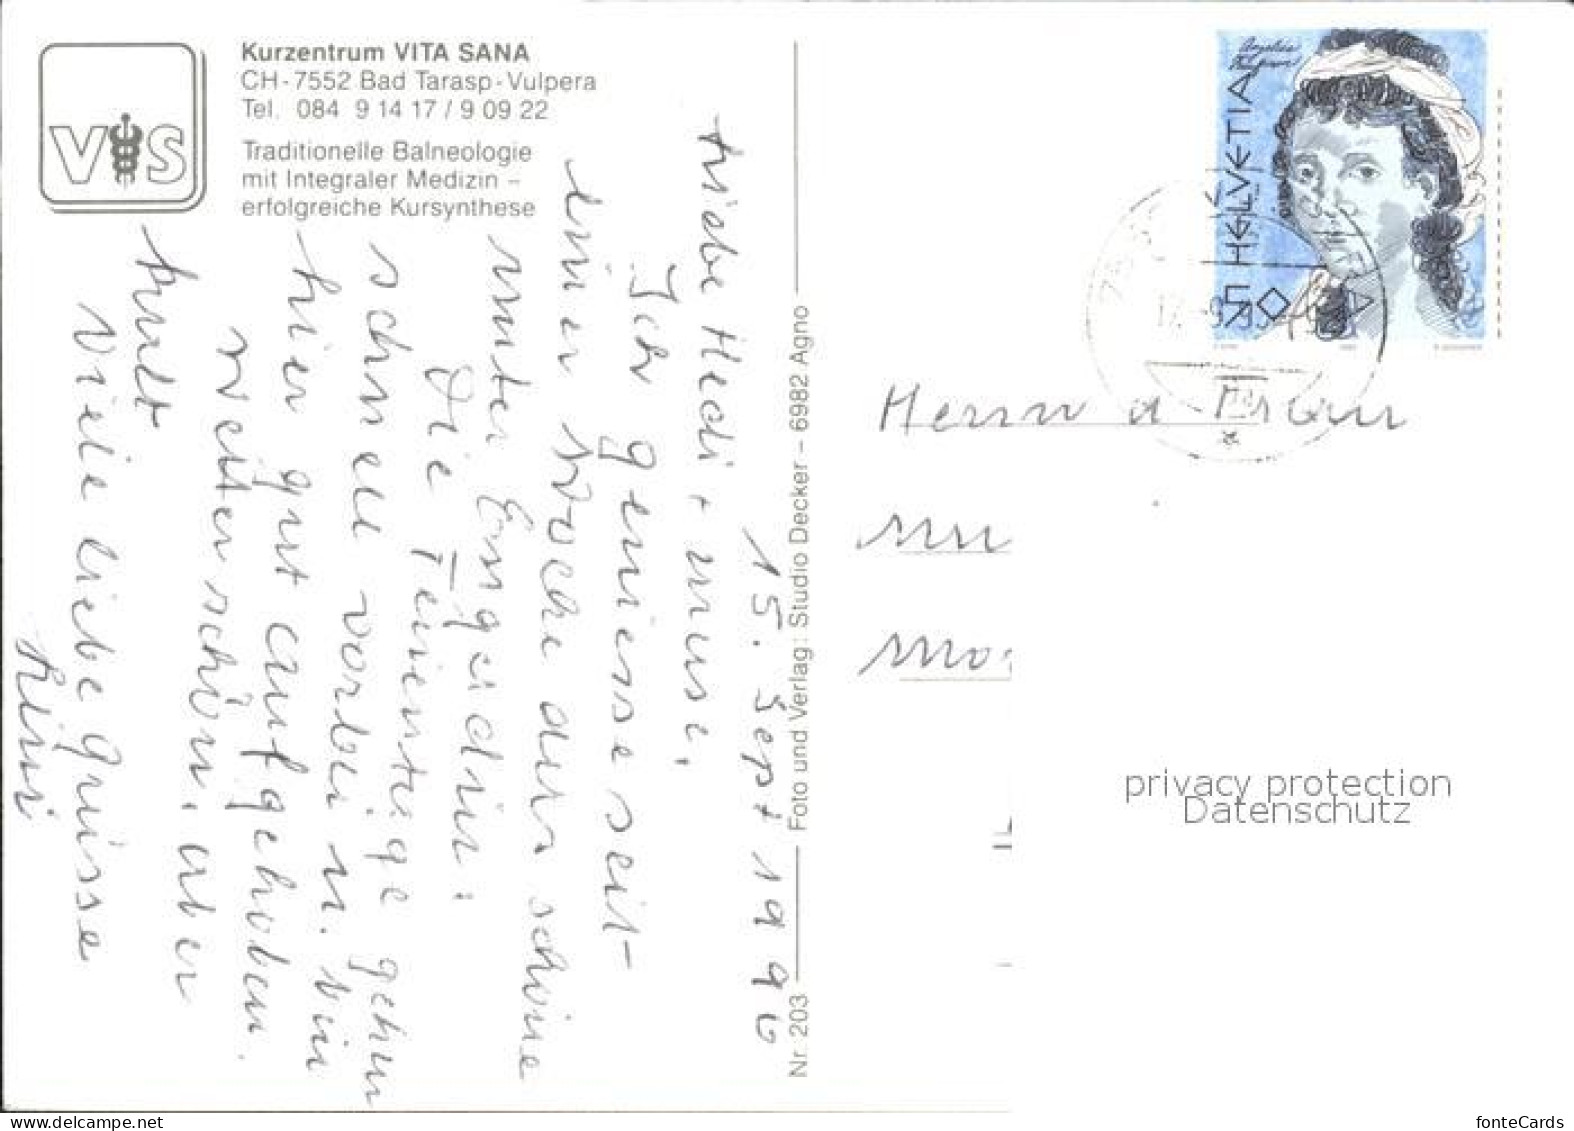 Kurzentrum VITA SANA
CH-7552 Bad Tarasp-Vulpera
Tel. 084 9 14 17 / 9 09 22
Traditionelle Balneologie
mit Integraler Medizin –
erfolgreiche Kursynthese
VS
15. Sept 1990
Liebe Hedi +
Ich geniesse seit
einer Woche das schöne
unter Engadin.
Die Ferientage gehen
schnell vorbei u. bin
hier gut aufgehoben.
Wetter schön, aber
kalt
Viele liebe Grüsse
Nr. 203
Foto und Verlag: Studio Decker – 6982 Agno
HELVETIA
50
Herrn u
privacy protection
Datenschutz
www.delcampe.net
fonteCards